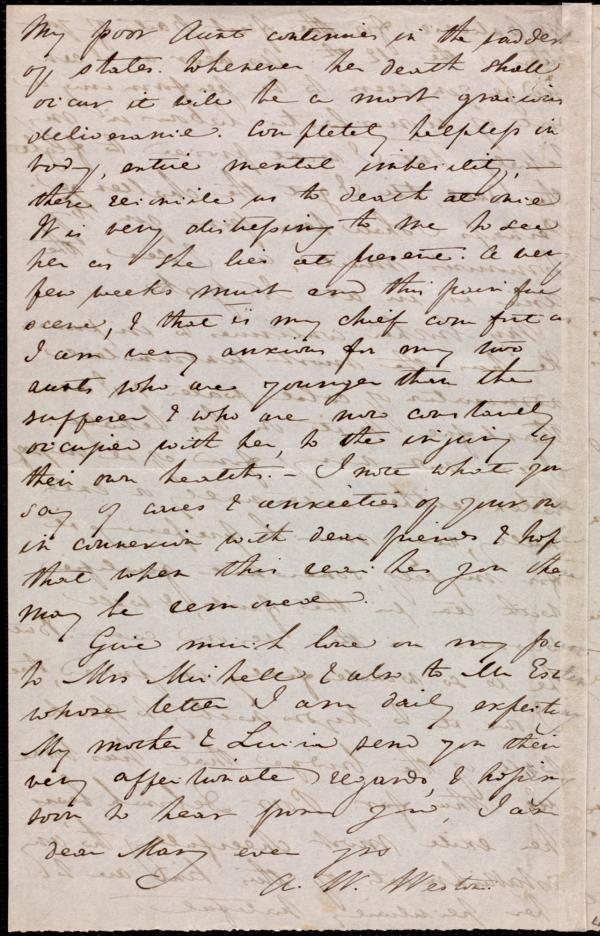 My poor Aunt continues in the sadder
of states. Whenever her death shall
occur it will be a most gracious
deliverance. Completely helpless in
body, entire mental imbecility, —
these reconcile us to death at once
It is very distressing to me to see
her as she lies at present. A very
few weeks must end this painful
scene, & that is my chief comfort as
I am very anxious for my two
aunts who are younger than the
sufferer & who are now constantly
occupied with her, to the injury of
their own health. — I note what you
say of cares & anxieties of your own
in connexion with dear friends & hope
that when this reaches you they
may be removed.
Give much love on my part
to Mrs Michell & also to Mr Estlin
whose letter I am daily expecting
My mother & Lucia send you their
very affectionate regards, & hoping
soon to hear from you, I am
dear Mary ever yrs
A. W. Weston.